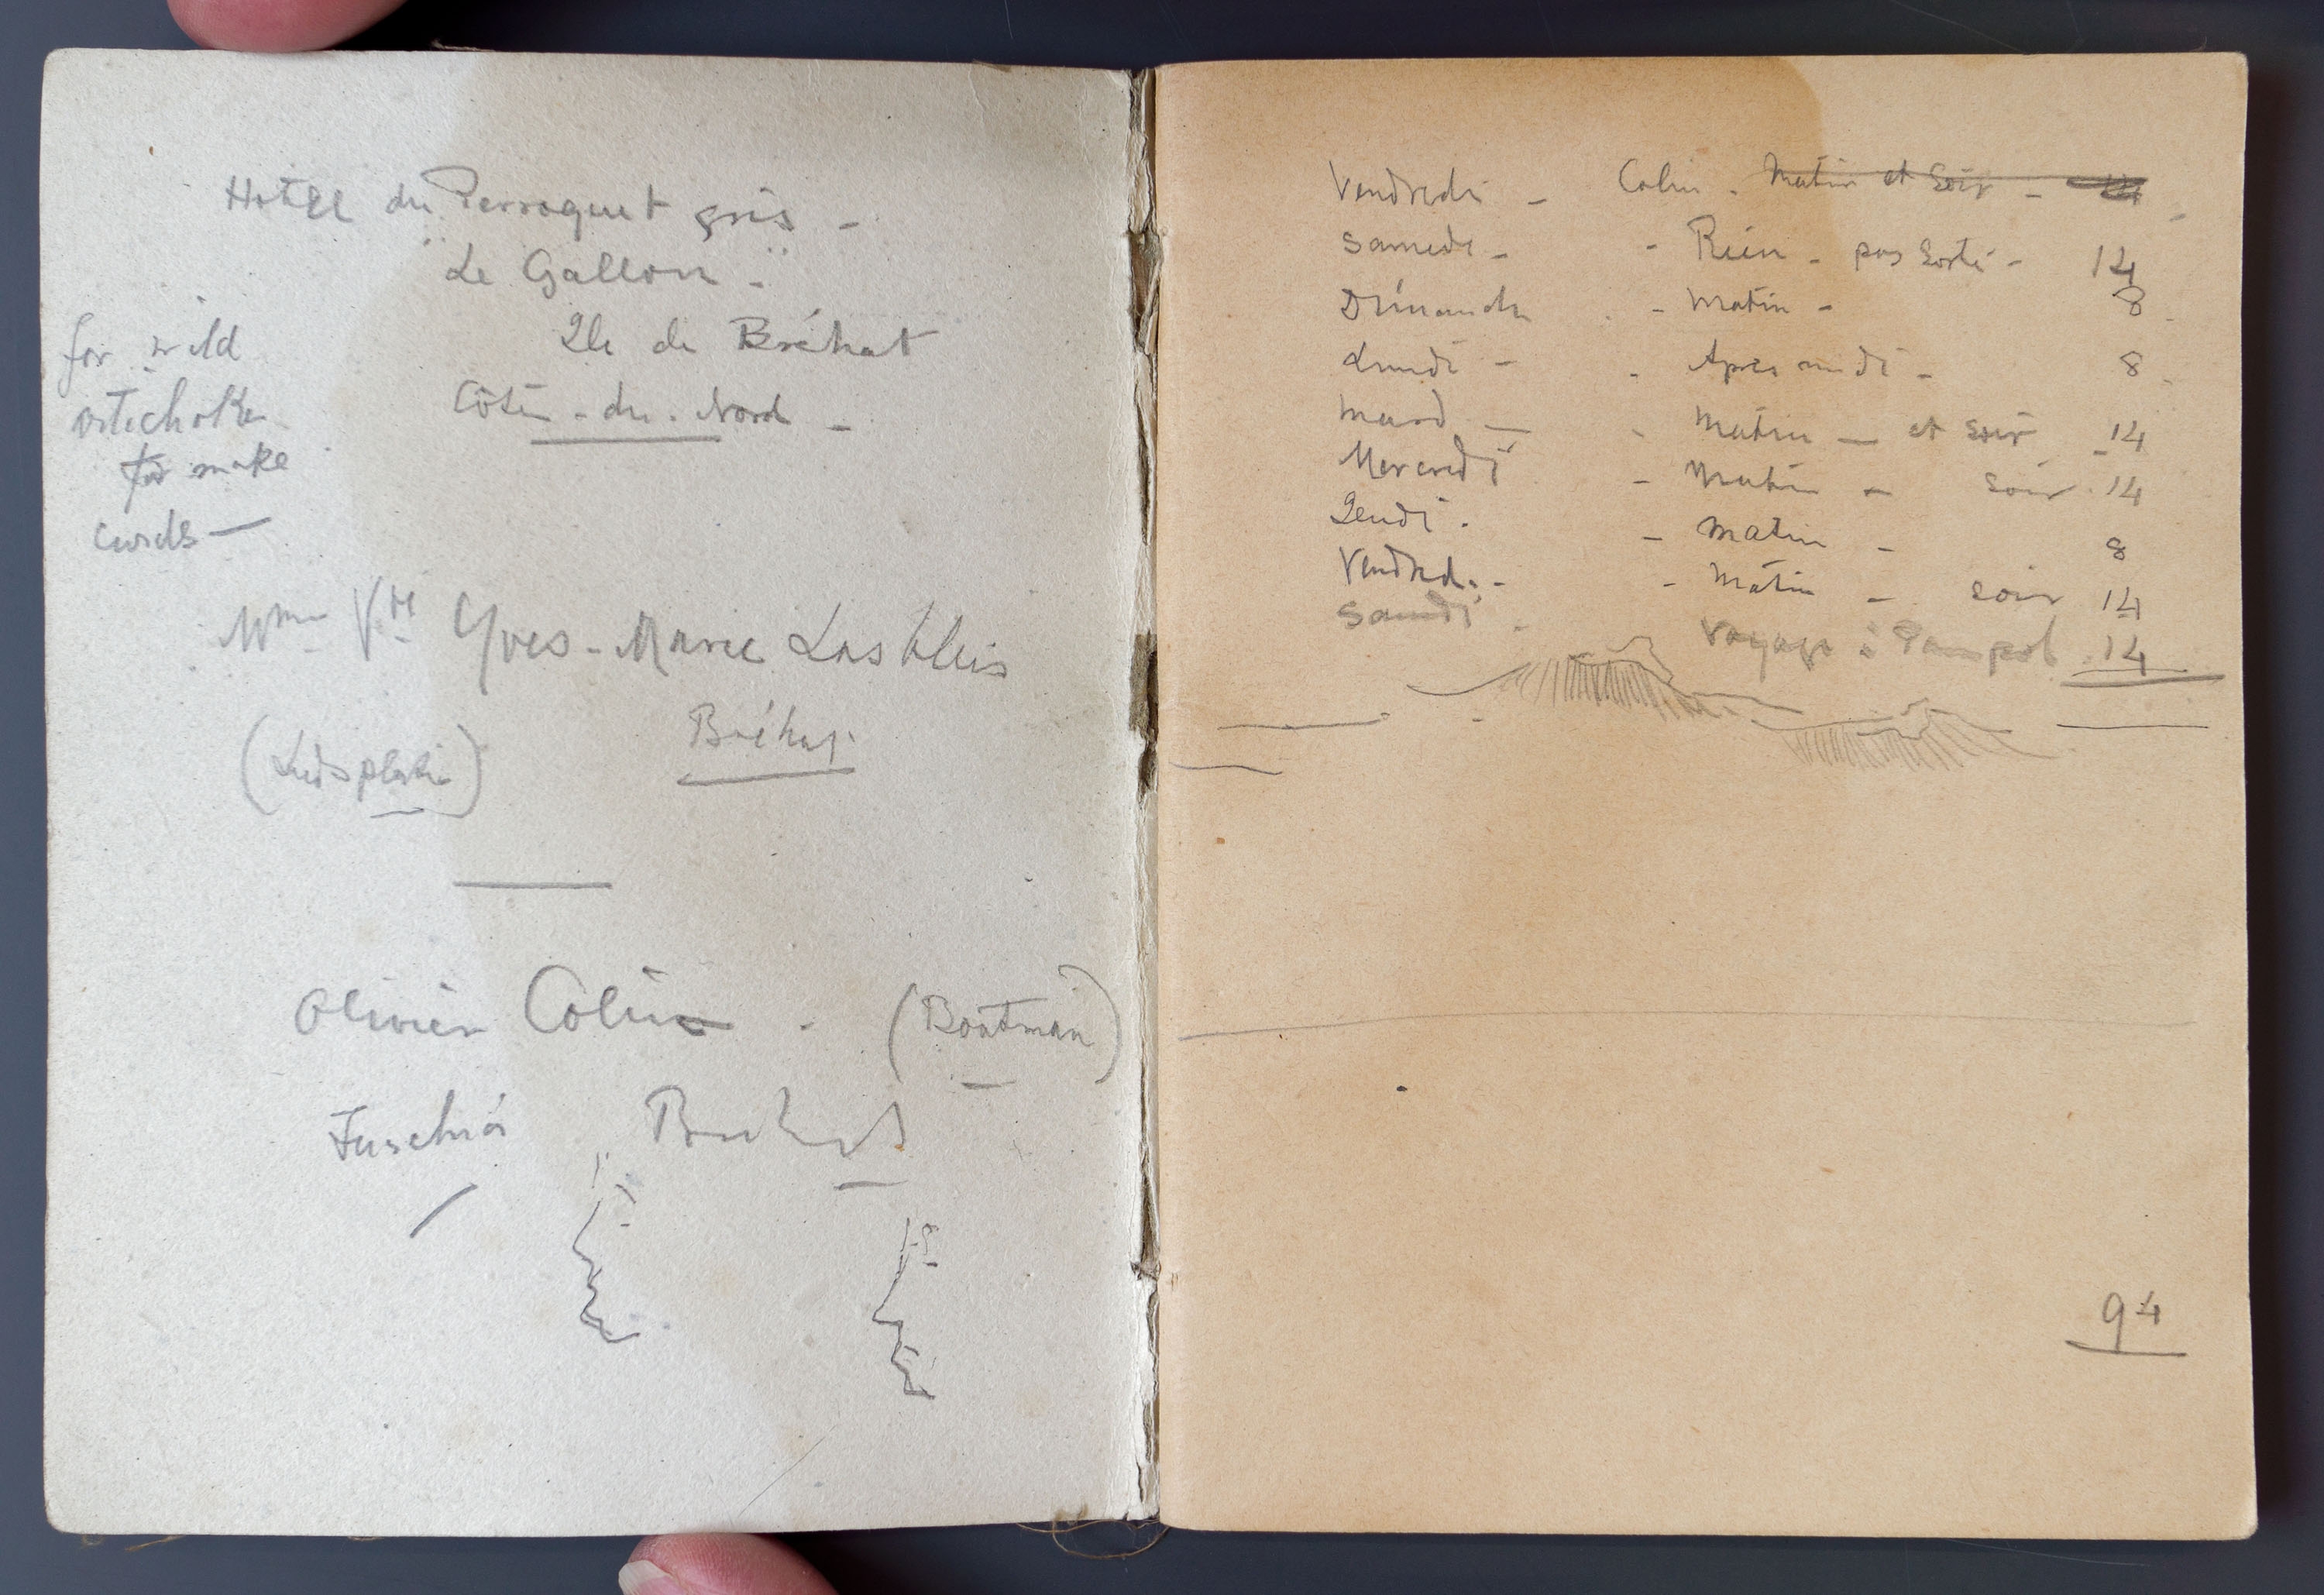 Hotel du Perroquet gris -
"Le Gallon -"
Ile de Bréhat
Côtes - du - Nord -
for wild
artichoke
for make
curds —
Mme Vve Yves - Marie
Bréhat
Olivier Colin - (Boatman)
Bréhat
Vendredi - Colin - Matin et Soir - 14
Samedi - - Rien - pas Sorti - 14
Dimanche - Matin - 8
Lundi - - Apres midi - 8
Mard — - Matin — et Soir - 14
Mercredi - Matin - Soir - 14
Jeudi - - Matin - 8
Vendredi - - Matin - Soir 14
Samdi - Voyage à Paimpol 14
94